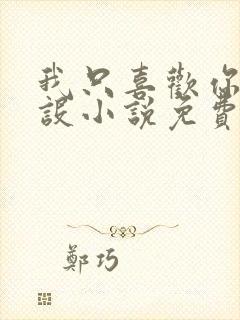 我只喜歡你
設小說免費
鄭巧